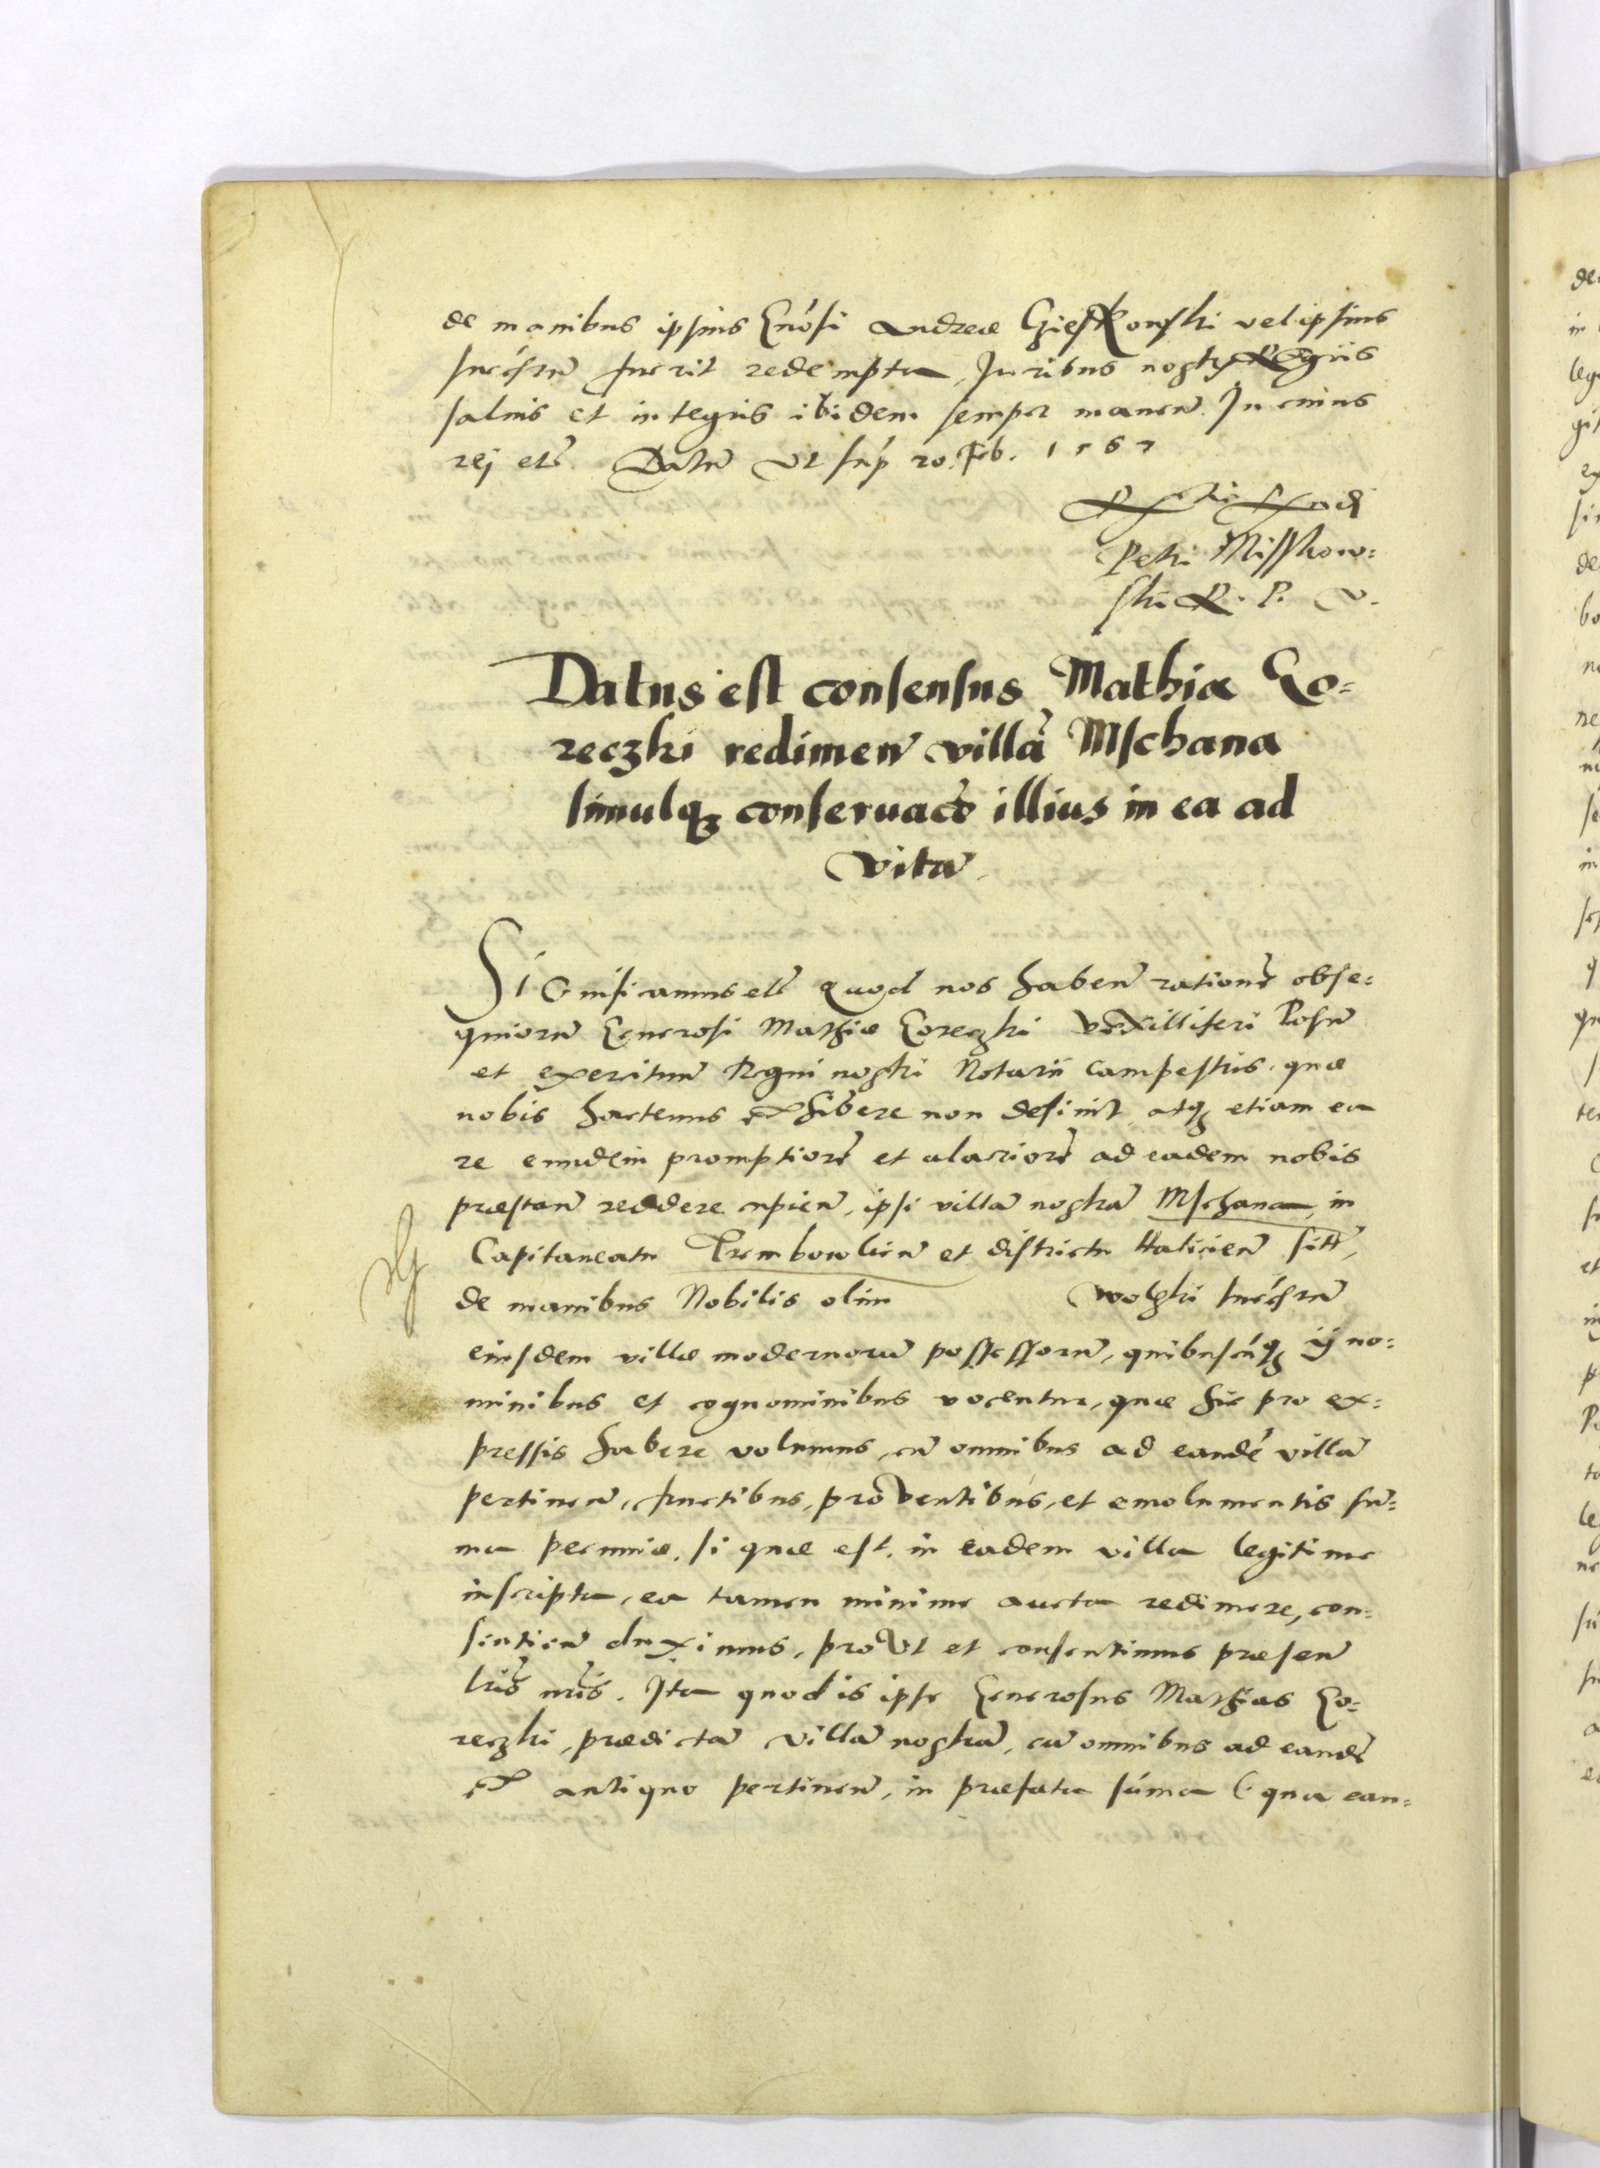 de manibus ipsius Gnosi Andreae Cieskowski vel ipsius
succesru fuerit redempta, Juribus nostris Regiis
salvis et integris ibidem semper manen. In cuius
rej etc. Datu ut supra 20. Feb. 1567
Petri Misskow=
ski R. P. V.
Datus est consensus Mathiæ Go=
reczki redimen villa Mschana
simulq conseruaco illius in ea ad
vita.
Significamus etc Quod nos haben ratione obse=
quioru Generosi Mathiæ Goreczki vexilliferi Posn
et exercituu Regni nostri Notarii campestris. quæ
nobis hactenus exhibere non desinit, atq etiam ea
re eundem promptiore et alacriore ad eadem nobis
præstan reddere cupien, ipsi villa nostra Mschana, in
Capitaneatu Trembowlien et districtu Halicien sitt,
de manibus Nobilis olim Wolski succesru
eiusdem villæ modernoru possessoru, quibuscuq ij no=
minibus et cognominibus vocentur, quæ hic pro ex=
pressis habere volumus, cu omnibus ad eande villa
pertinen, fructibus, proventibus, et emolumentis su=
ma pecuniæ, si quæ est, in eadem villa legitime
inscripta, ea tamen minime aucta redimere, con=
sentien duximus, prout et consentimus præsen
lris nris. Ita quod is ipse Generosus Mathias Go=
reczki, prædicta villa nostra, cu omnibus ad eande
ex antiquo pertinen, in præfata suma (qua ean=